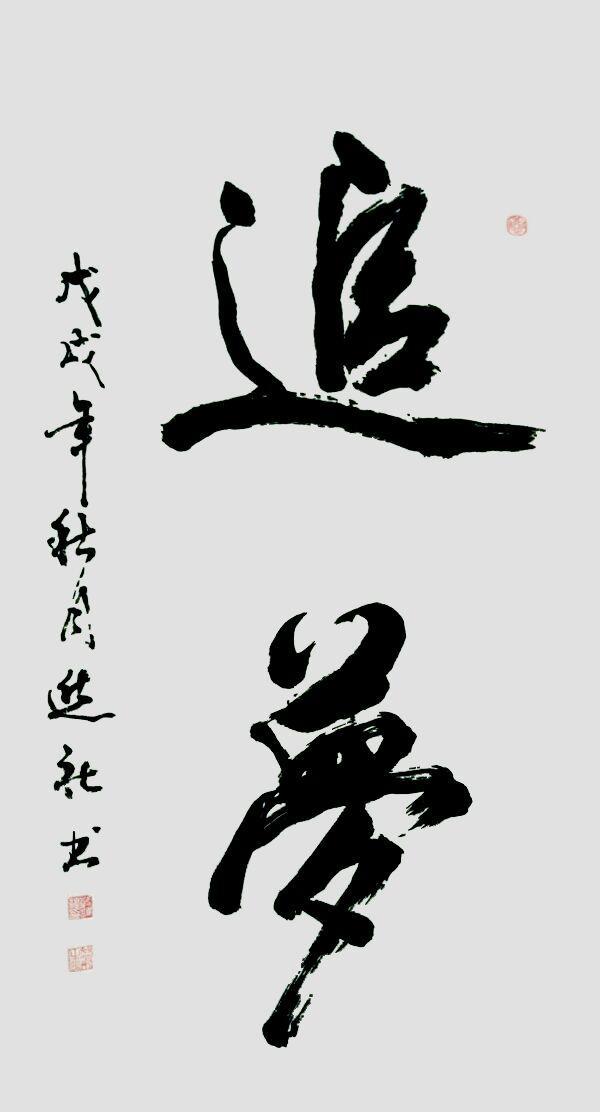 追夢
戊戌年秋月 書